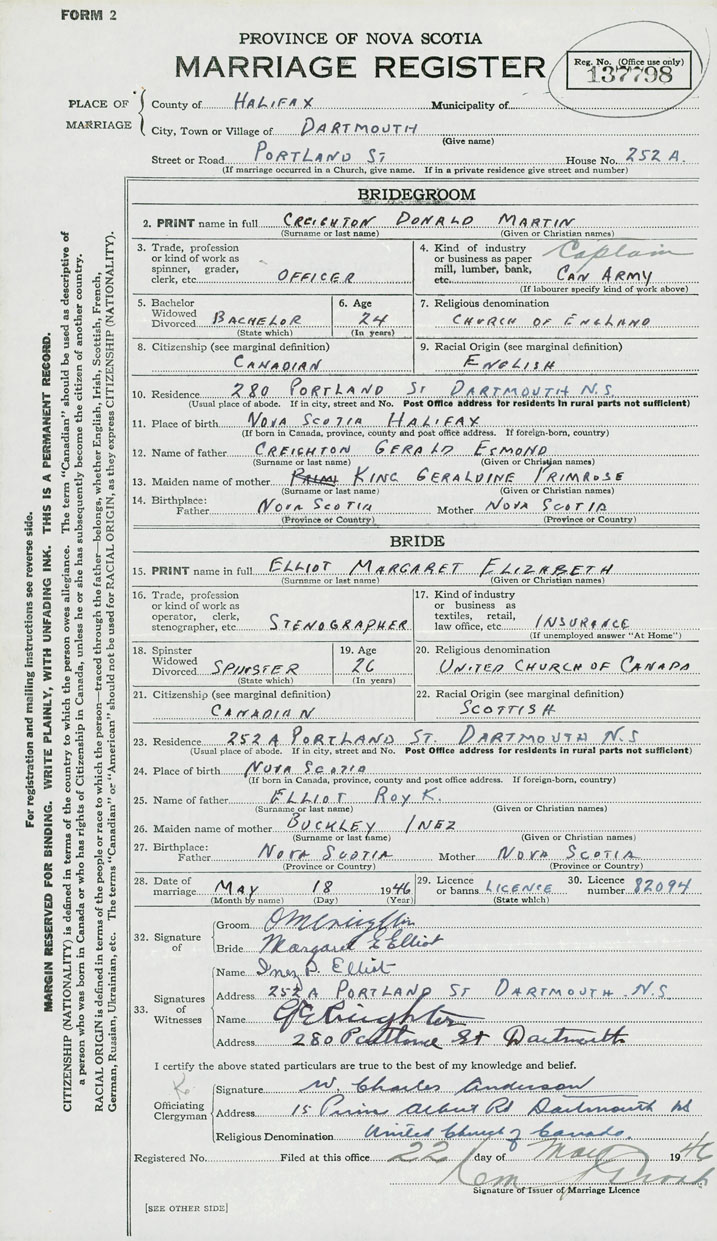 FORM 2
PROVINCE OF NOVA SCOTIA
MARRIAGE REGISTER
Reg. No. (Office use only)
137798
PLACE OF MARRIAGE
County of HALIFAX Municipality of
City, Town or Village of DARTMOUTH
(Give name)
Street or Road PORTLAND ST House No. 252 A.
(If marriage occurred in a Church, give name. If in a private residence give street and number)
BRIDEGROOM
2. PRINT name in full CREIGHTON DONALD MARTIN
(Surname or last name) (Given or Christian names)
3. Trade, profession or kind of work as spinner, grader, clerk, etc. OFFICER
4. Kind of industry or business as paper mill, lumber, bank, etc. Captain CAN ARMY
(If labourer specify kind of work above)
5. Bachelor Widowed Divorced BACHELOR
(State which)
6. Age 24
(In years)
7. Religious denomination
CHURCH OF ENGLAND
8. Citizenship (see marginal definition)
CANADIAN
9. Racial Origin (see marginal definition)
ENGLISH
10. Residence 280 PORTLAND ST DARTMOUTH N.S.
(Usual place of abode. If in city, street and No. Post Office address for residents in rural parts not sufficient)
11. Place of birth NOVA SCOTIA HALIFAX
(If born in Canada, province, county and post office address. If foreign-born, country)
12. Name of father CREIGHTON GERALD ESMOND
(Surname or last name) (Given or Christian names)
13. Maiden name of mother KING GERALDINE PRIMROSE
(Surname or last name) (Given or Christian names)
14. Birthplace: Father NOVA SCOTIA Mother NOVA SCOTIA
(Province or Country) (Province or Country)
BRIDE
15. PRINT name in full ELLIOT MARGARET ELIZABETH
(Surname or last name) (Given or Christian names)
16. Trade, profession or kind of work as operator, clerk, stenographer, etc. STENOGRAPHER
17. Kind of industry or business as textiles, retail, law office, etc. INSURANCE
(If unemployed answer "At Home")
18. Spinster Widowed Divorced SPINSTER
(State which)
19. Age 26
(In years)
20. Religious denomination
UNITED CHURCH OF CANADA
21. Citizenship (see marginal definition)
CANADIAN
22. Racial Origin (see marginal definition)
SCOTTISH
23. Residence 252 A PORTLAND ST. DARTMOUTH N.S
(Usual place of abode. If in city, street and No. Post Office address for residents in rural parts not sufficient)
24. Place of birth NOVA SCOTIA
(If born in Canada, province, county and post office address. If foreign-born, country)
25. Name of father ELLIOT ROY K.
(Surname or last name) (Given or Christian names)
26. Maiden name of mother BUCKLEY INEZ
(Surname or last name) (Given or Christian names)
27. Birthplace: Father NOVA SCOTIA Mother NOVA SCOTIA
(Province or Country) (Province or Country)
28. Date of marriage MAY 18 1946
(Month by name) (Day) (Year)
29. Licence or banns LICENCE
(State which)
30. Licence number 82094
32. Signature of
Groom DMCreighton
Bride Margaret E Elliot
33. Signatures of Witnesses
Name Inez P. Elliot
Address 252 A PORTLAND ST DARTMOUTH N.S
Name GECreighton
Address 280 Portland St Dartmouth
I certify the above stated particulars are true to the best of my knowledge and belief.
Officiating Clergyman
Signature W. Charles Anderson
Address 15 Prince Albert Rd Dartmouth NS
Religious Denomination United Church of Canada.
Registered No. Filed at this office 22 day of May 1946
Signature of Issuer of Marriage Licence
[SEE OTHER SIDE]
For registration and mailing instructions see reverse side.
MARGIN RESERVED FOR BINDING. WRITE PLAINLY, WITH UNFADING INK. THIS IS A PERMANENT RECORD.
CITIZENSHIP (NATIONALITY) is defined in terms of the country to which the person owes allegiance. The term "Canadian" should be used as descriptive of
a person who was born in Canada or who has rights of Citizenship in Canada, unless he or she has subsequently become the citizen of another country.
RACIAL ORIGIN is defined in terms of the people or race to which the person—traced through the father—belongs, whether English, Irish, Scottish, French,
German, Russian, Ukrainian, etc. The terms "Canadian" or "American" should not be used for RACIAL ORIGIN, as they express CITIZENSHIP (NATIONALITY).